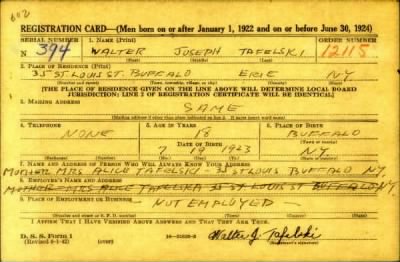 602
REGISTRATION CARD—(Men born on or after January 1, 1922 and on or before June 30, 1924)
SERIAL NUMBER 1. NAME (Print) ORDER NUMBER
N 394 WALTER JOSEPH TAFELSKI 12115
(First) (Middle) (Last)
2. PLACE OF RESIDENCE (Print)
35 ST LOUIS ST. BUFFALO ERIE NY
(Number and street) (Town, township, village, or city) (County) (State)
[THE PLACE OF RESIDENCE GIVEN ON THE LINE ABOVE WILL DETERMINE LOCAL BOARD
JURISDICTION; LINE 2 OF REGISTRATION CERTIFICATE WILL BE IDENTICAL]
3. MAILING ADDRESS
SAME
(Mailing address if other than place indicated on line 2. If same insert word same)
4. TELEPHONE 5. AGE IN YEARS 6. PLACE OF BIRTH
NONE 18 BUFFALO
DATE OF BIRTH (Town or county)
7 19 1923 N.Y.
(Exchange) (Number) (Mo.) (Day) (Yr.) (State or country)
7. NAME AND ADDRESS OF PERSON WHO WILL ALWAYS KNOW YOUR ADDRESS
MOTHER MRS ALICE TAFELSKI - 35 ST LOUIS BUFFALO N.Y.
8. EMPLOYER'S NAME AND ADDRESS
MOTHER MRS ALICE TAFELSKA 35 ST. LOUIS ST BUFFALO N.Y.
9. PLACE OF EMPLOYMENT OR BUSINESS
NOT EMPLOYED -
(Number and street or R. F. D. number) (Town) (County) (State)
I AFFIRM THAT I HAVE VERIFIED ABOVE ANSWERS AND THAT THEY ARE TRUE.
D. S. S. Form 1
(Revised 6-1-42) (over) Walter J. Tafelski
(Registrant's signature)